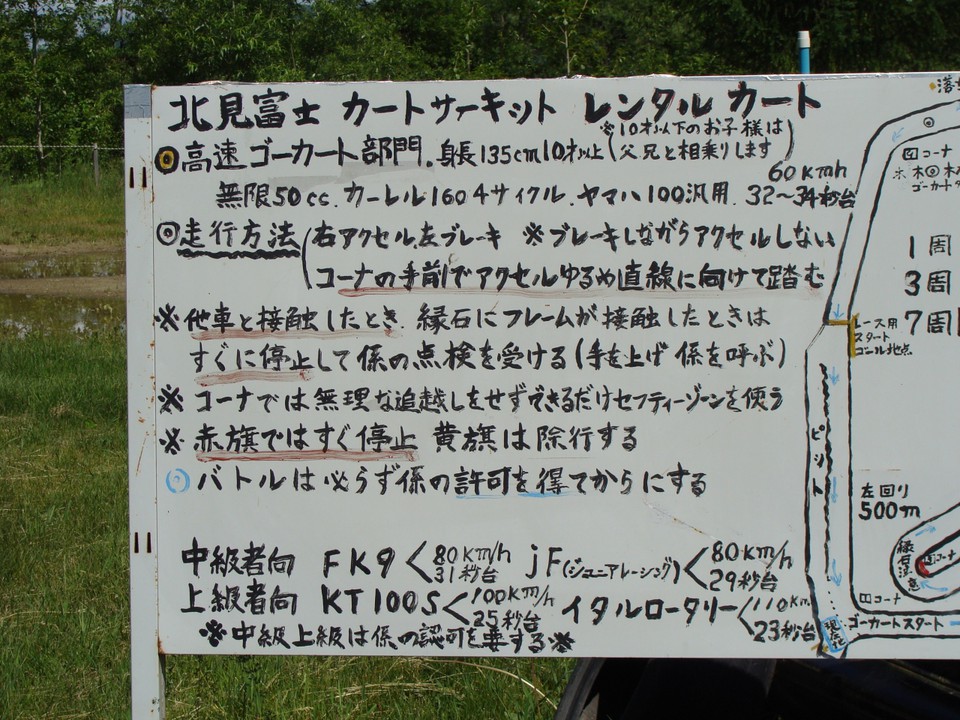 北見富士 カートサーキット レンタル カート
◎高速ゴーカート部門.身長135cm10才以上
※10才以下のお子様は
父兄と相乗りします
60km/h
無限50cc.カーレル160 4サイクル.ヤマハ100汎用.32〜34秒台
◎走行方法
右アクセル.左ブレーキ ※ブレーキしながらアクセルしない
コーナの手前でアクセルゆるめ直線に向けて踏む
※他車と接触したとき 縁石にフレームが接触したときは
すぐに停止して係の点検を受ける(手を上げ係を呼ぶ)
※コーナでは無理な追越しをせずできるだけセフティーゾーンを使う
※赤旗ではすぐ停止 黄旗は除行する
◎バトルは必らず係の許可を得てからにする
中級者向 FK9 80km/h 31秒台 jF(ジュニアレーシング) 80km/h 29秒台
上級者向 KT100S 100km/h 25秒台 イタルロータリー 110km 23秒台
※中級上級は係の認可を要する※
コーナ
ゴーカート
1周
3周
7周
レース用
スタート
ゴール地点
ピット
左回り
500m
縁石注意
コーナ
コーナ
ゴーカートスタート
現在地